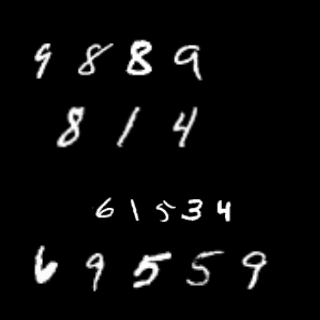 9889
814
61534
69559